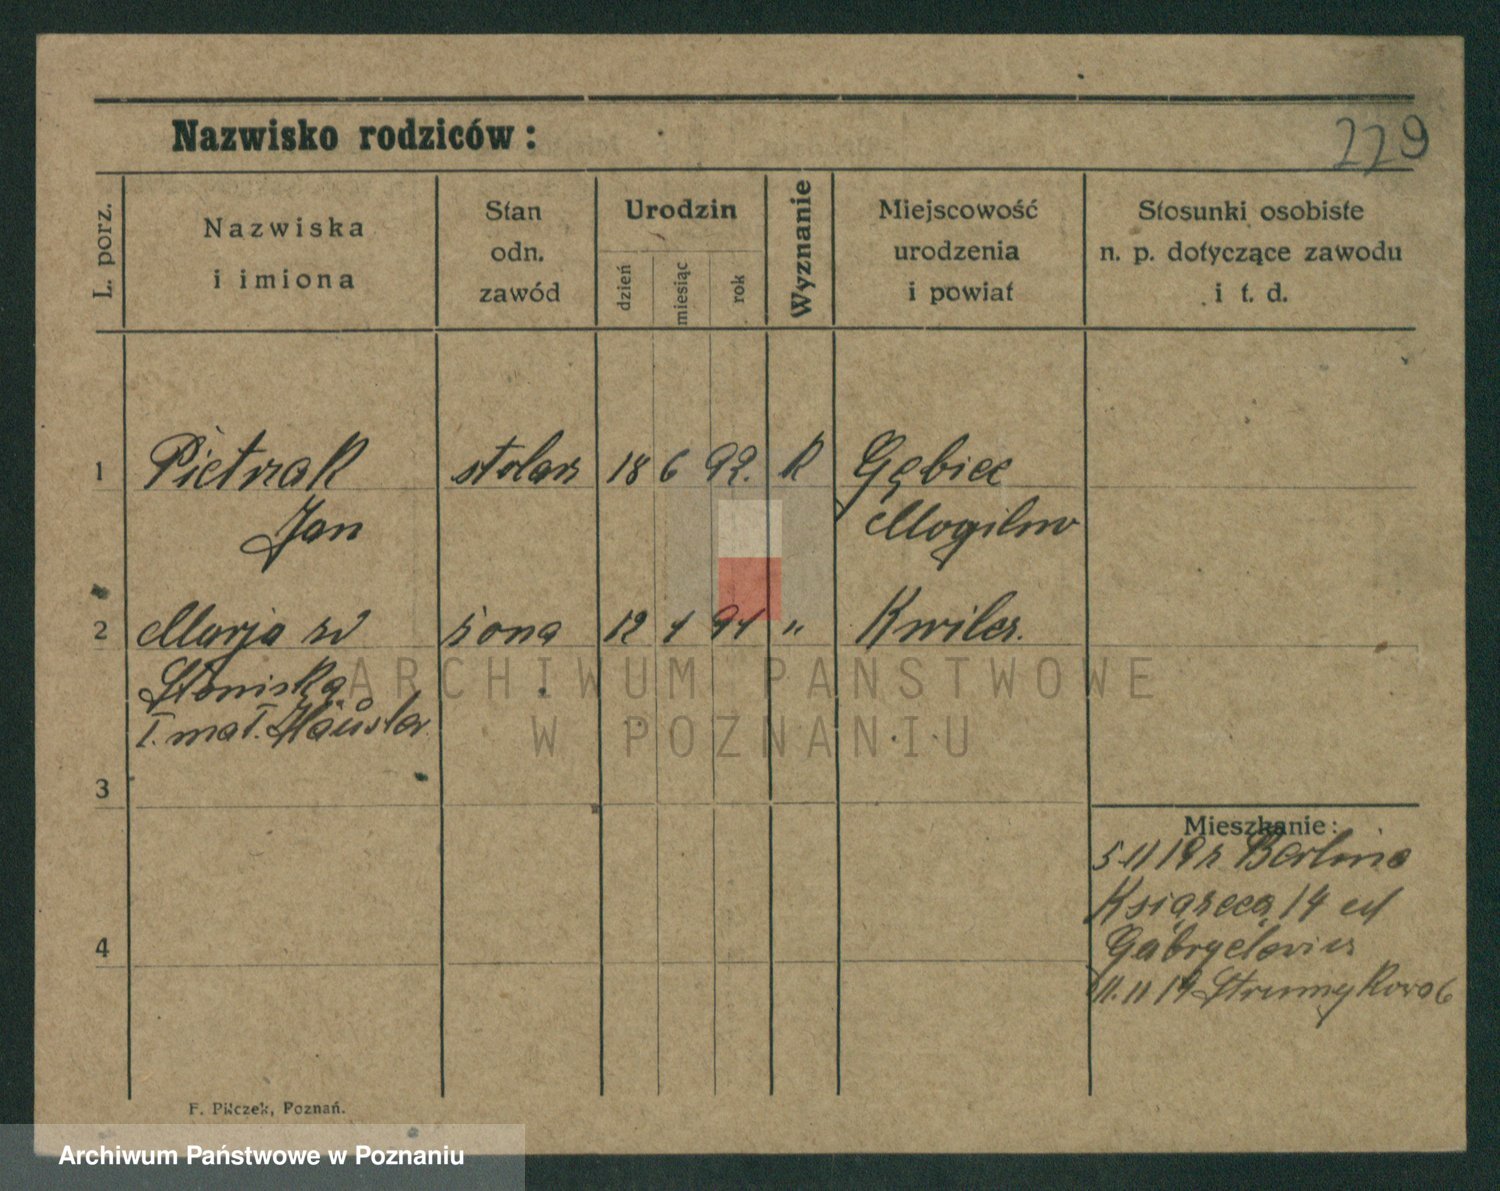 Nazwisko rodziców:
229
L. porz.
Nazwiska
i imiona
Stan
odn.
zawód
Urodzin
dzień
miesiąc
rok
Wyznanie
Miejscowość
urodzenia
i powiat
Stosunki osobiste
n. p. dotyczące zawodu
i t. d.
1 Pietrzak stolarz 18 6 92. K Gębice
Jan Mogilno
2 Marja żona 12 1 91 " Kwilcz.
I. mał. Häusler
ARCHIWUM PAŃSTWOWE
W POZNANIU
3
Mieszkanie:
5 11 19 z Berlina
Książęca 14
4
Gabryelewicz
11.11 19 Strumykowa 6
F. Pilczek, Poznań.
Archiwum Państwowe w Poznaniu